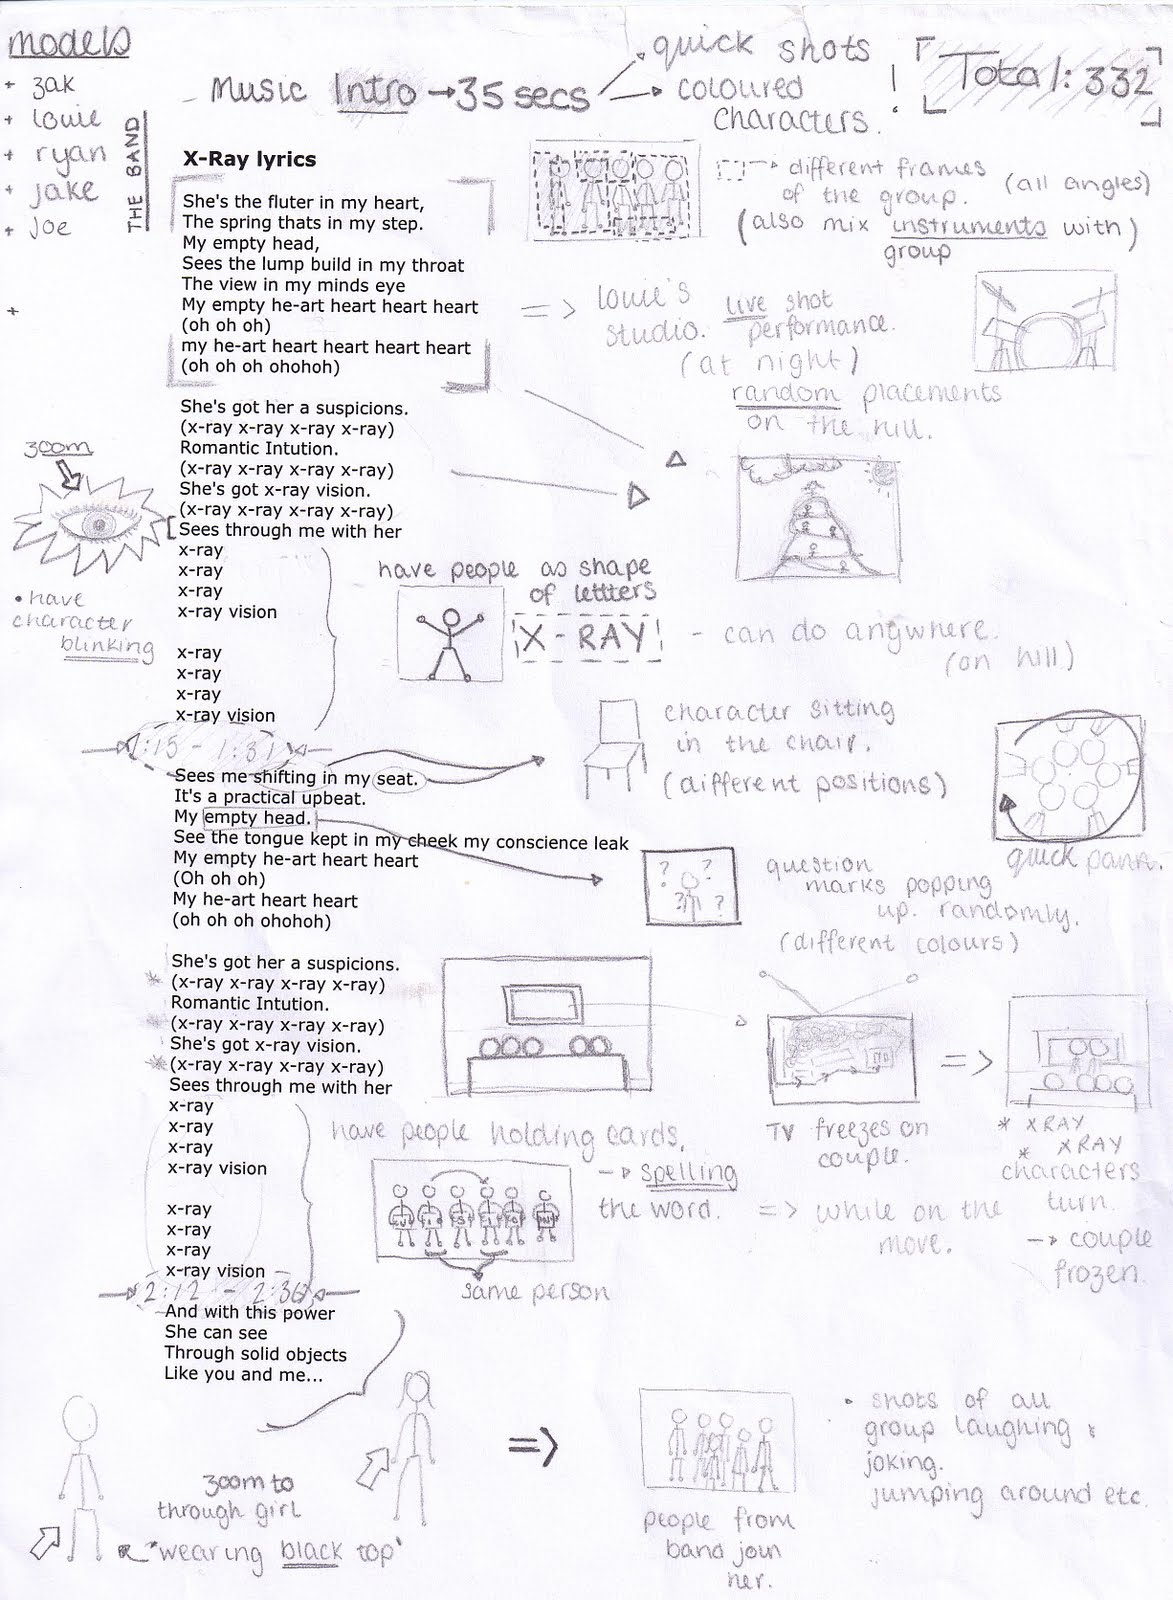 models
+ zak
+ louie
+ ryan
+ jake
+ joe
THE BAND
+
Music Intro → 35 secs
quick shots
coloured
characters.
Total: 332
X-Ray lyrics
She's the fluter in my heart,
The spring thats in my step.
My empty head,
Sees the lump build in my throat
The view in my minds eye
My empty he-art heart heart heart
(oh oh oh)
my he-art heart heart heart heart
(oh oh oh ohohoh)
different frames
of the group. (all angles)
(also mix instruments with)
group
=> louie's
studio. live shot
performance.
(at night)
random placements
on the hill.
She's got her a suspicions.
(x-ray x-ray x-ray x-ray)
Romantic Intution.
(x-ray x-ray x-ray x-ray)
She's got x-ray vision.
(x-ray x-ray x-ray x-ray)
Sees through me with her
x-ray
x-ray
x-ray
x-ray vision
x-ray
x-ray
x-ray
x-ray vision
zoom
• have
character
blinking
have people as shape
of lettters
X-RAY
- can do anywhere.
(on hill)
1:15 - 1:31
character sitting
in the chair.
(different positions)
quick pann.
Sees me shifting in my seat.
It's a practical upbeat.
My empty head.
See the tongue kept in my cheek my conscience leak
My empty he-art heart heart
(Oh oh oh)
My he-art heart heart
(oh oh oh ohohoh)
? ? ? ?
question
marks popping
up. randomly.
(different colours)
She's got her a suspicions.
* (x-ray x-ray x-ray x-ray)
Romantic Intution.
* (x-ray x-ray x-ray x-ray)
She's got x-ray vision.
* (x-ray x-ray x-ray x-ray)
Sees through me with her
x-ray
x-ray
x-ray
x-ray vision
x-ray
x-ray
x-ray
x-ray vision
TV freezes on
couple.
=>
* XRAY
* XRAY
characters
turn.
→ couple
frozen.
have people holding cards,
→ spelling
the word.
=> while on the
move.
same person
2:12 - 2:36
And with this power
She can see
Through solid objects
Like you and me...
zoom to
through girl
"wearing black top"
=>
people from
band join
her.
• shots of all
group laughing &
joking.
jumping around etc.